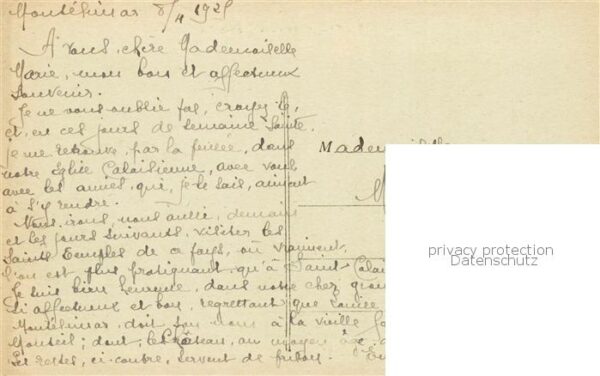 Montélimar 8/4 1925
A vous, chère Mademoiselle
Marie, mon bon et affectueux
souvenir.
Je ne vous oublie pas, croyez-le,
et, en ces jours de semaine Sainte,
je me retrouve, par la pensée, dans
notre Eglise Calaisienne, avec vous,
avec les amies, qui, je le sais, aiment
à s'y rendre.
Nous irons, nous aussi, demain
et les jours suivants, visiter les
Saints Temples de ce pays, où vraiment,
l'on est plus pratiquant qu'à Saint-Calais
Je suis bien heureuse, dans notre chez
si affectueux et bon, regrettant que
Montélimar, doit son nom à la vieille
Monteil; dont, le Château, au moyen âge
ci-contre, servent de prison.
Mademoiselle
M
privacy protection
Datenschutz